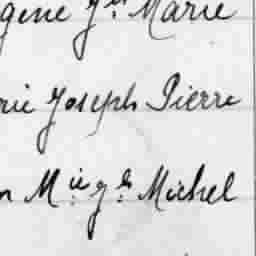 gène Jh Marie
rie Joseph Pierre
n Mie gh Michel